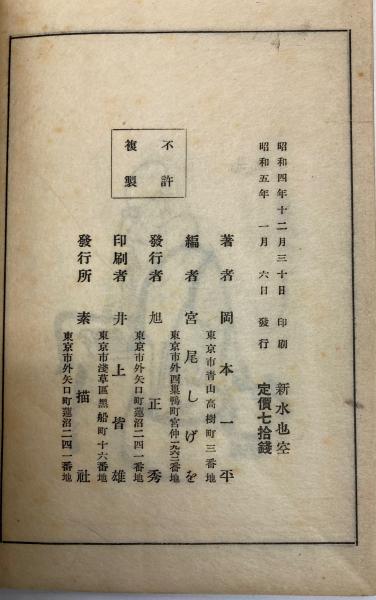 昭和四年十二月三十日 印刷
昭和五年 一月 六日 發行
新水也空
定價七拾錢
著者 岡本一平
東京市青山高樹町三番地
編者 宮尾しげを
東京市外西巣鴨町宮仲一九六二番地
發行者 旭正秀
東京市外矢口町蓮沼二四一番地
印刷者 井上皆雄
東京市淺草區黑船町十六番地
發行所 素描社
東京市外矢口町蓮沼二四一番地
不許
複製